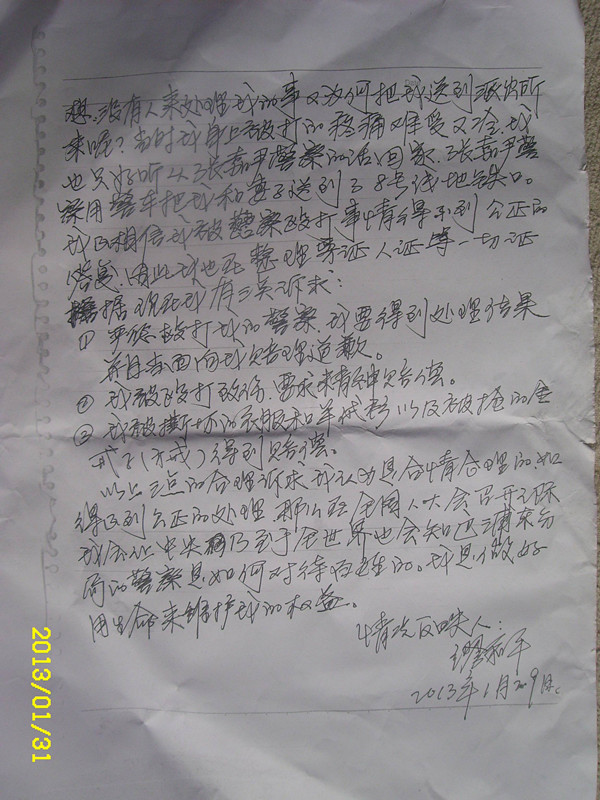 想。没有人来处理我的事又为何把我送到派出所
来呢？当时我身上被打的疼痛难受又冷，我
也只好听从张嘉尹警察的话回家，张嘉尹警
察用警车把我和妻子送到了8号线地铁口。
我不相信我被警察殴打事情得不到公正的
答复，因此我也在整理旁证人证等一切证
据现在我有三点诉求：
① 严惩殴打我的警察，我要得到处理结果
并且书面向我赔理道歉。
② 我被殴打致伤，要求精神赔偿。
③ 我被撕坏的衣服和羊绒衫以及被抢的金
戒子（方戒）得到赔偿。
以上三点的合理诉求我认为是合情合理的如
得不到公正的处理，那么在全国人大会召开之际
我会让中央乃至于全世界也会知道浦东分
局的警察是如何对待百姓的。我是做好
用生命来维护我的权益。
情况反映人：
2013年1月29日。
2013/01/31